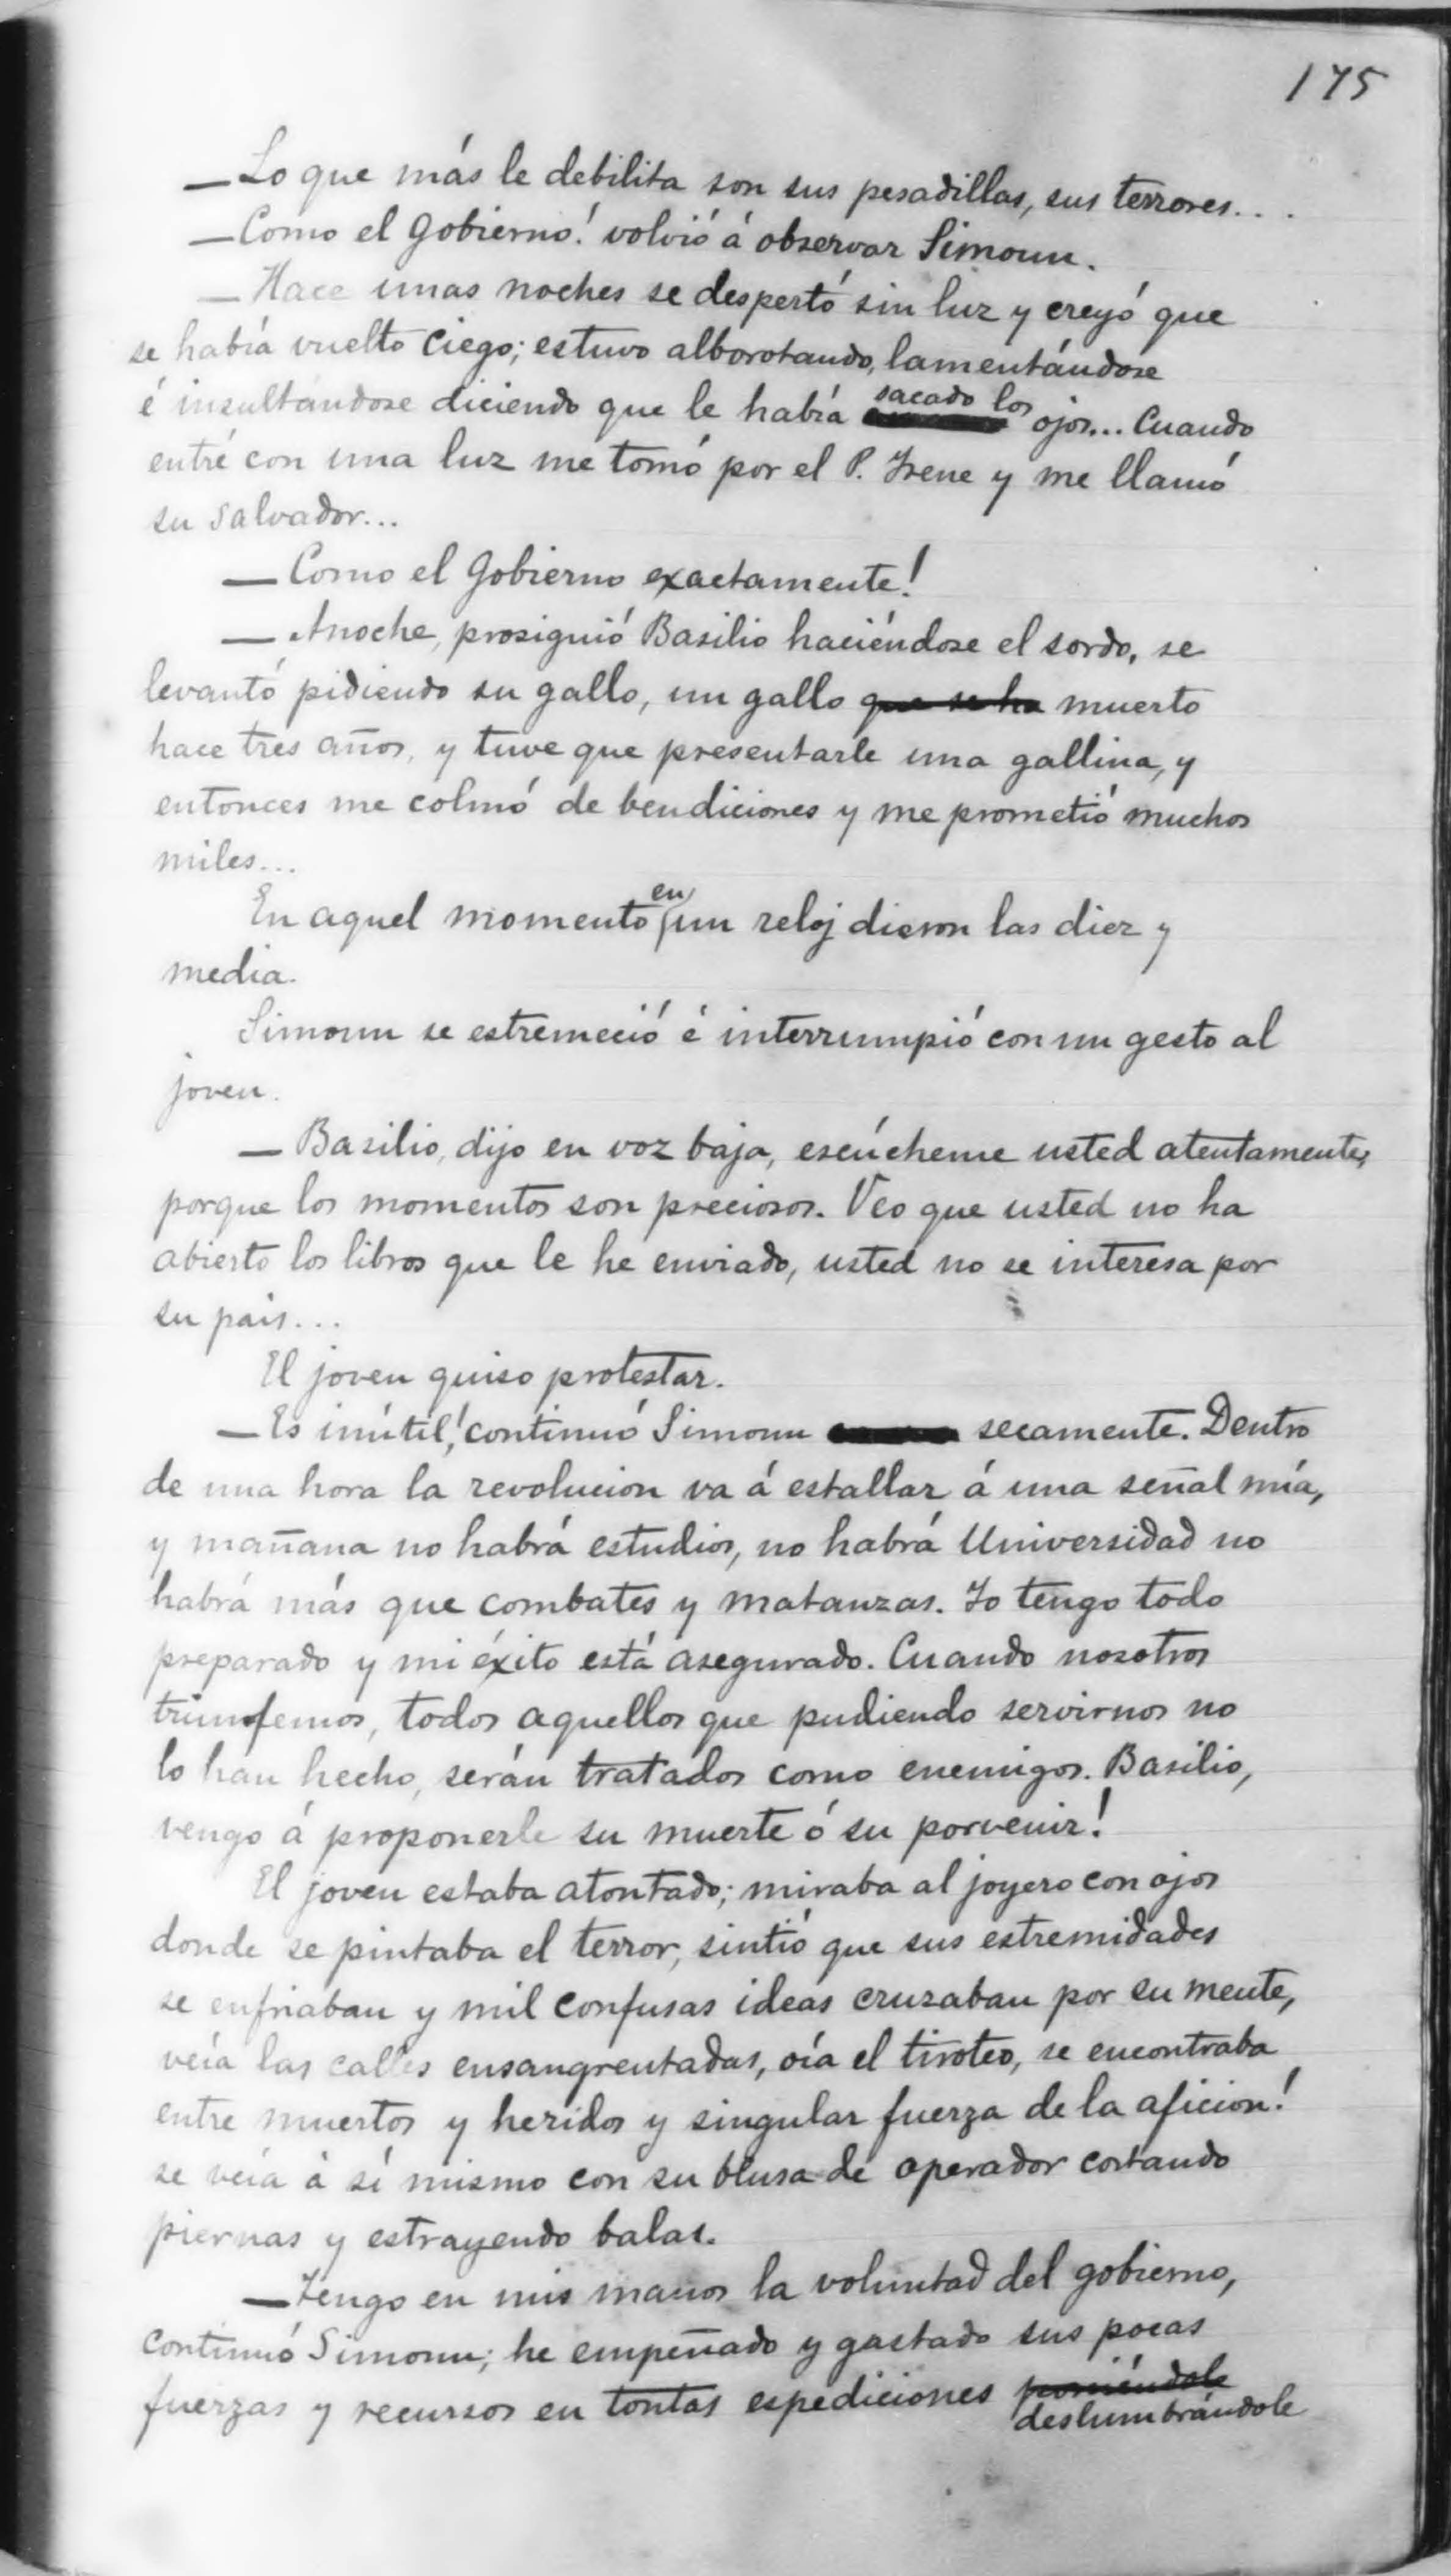 175
—Lo que más le debilita son sus pesadillas, sus terrores...
—Como el Gobierno! volvió á observar Simoun.
—Hace unas noches se despertó sin luz y creyó que
se había vuelto ciego; estuvo alborotando, lamentándose
é insultándose diciendo que le había sacado los ojos... Cuando
entré con una luz me tomó por el P. Irene y me llamó
su salvador...
—Como el Gobierno exactamente!
—Anoche, prosiguió Basilio haciéndose el sordo, se
levantó pidiendo su gallo, un gallo que se ha muerto
hace tres años, y tuve que presentarle una gallina, y
entonces me colmó de bendiciones y me prometió muchos
miles...
En aquel momento en un reloj dieron las diez y
media.
Simoun se estremeció é interrumpió con un gesto al
joven.
—Basilio, dijo en voz baja, escúcheme usted atentamente,
porque los momentos son preciosos. Veo que usted no ha
abierto los libros que le he enviado, usted no se interesa por
su pais...
El joven quiso protestar.
—Es inútil! continuó Simoun secamente. Dentro
de una hora la revolucion va á estallar á una señal mía,
y mañana no habrá estudios, no habrá Universidad no
habrá más que combates y matanzas. Yo tengo todo
preparado y mi éxito está asegurado. Cuando nosotros
triunfemos, todos aquellos que pudiendo servirnos no
lo han hecho, serán tratados como enemigos. Basilio,
vengo á proponerle su muerte ó su porvenir!
El joven estaba atontado; miraba al joyero con ojos
donde se pintaba el terror, sintió que sus estremidades
se enfriaban y mil confusas ideas cruzaban por su mente,
veía las calles ensangrentadas, oía el tiroteo, se encontraba
entre muertos y heridos y singular fuerza de la aficion!
se veía á sí mismo con su blusa de operador cortando
piernas y estrayendo balas.
—Tengo en mis manos la voluntad del gobierno,
continuó Simoun; he empeñado y gastado sus pocas
fuerzas y recursos en tontas espediciones poniéndole
deslumbrándole